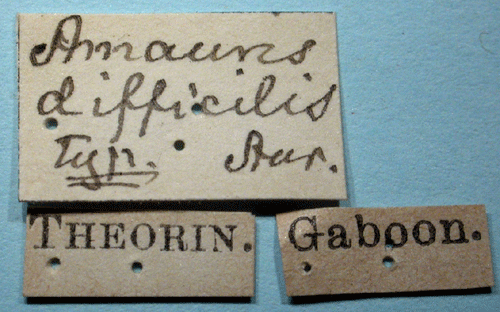 Amauris
difficilis
Typ. Aur.
THEORIN. Gaboon.